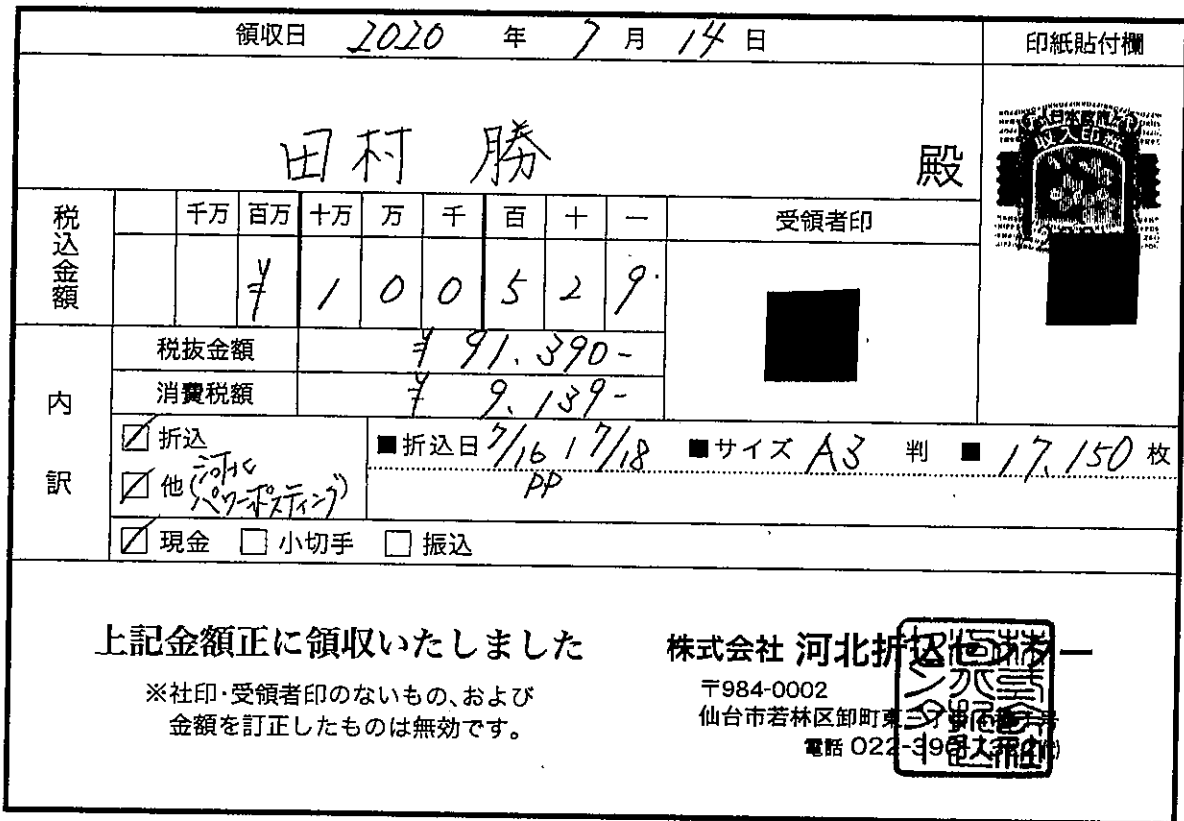 領収日 2020 年 7 月 14 日
印紙貼付欄
田村 勝 殿
日本政府
収入印紙
税込金額
千万 百万 十万 万 千 百 十 一
受領者印
¥ 1 0 0 5 2 9
内訳
税抜金額 ¥ 91.390-
消費税額 ¥ 9.139-
☑ 折込
■折込日 7/16 17/18 ■サイズ A3 判 ■ 17.150 枚
PP
☑ 他(河北パワーポスティング)
☑ 現金 □ 小切手 □ 振込
上記金額正に領収いたしました
※社印・受領者印のないもの、および
金額を訂正したものは無効です。
株式会社 河北折込センター
〒984-0002
仙台市若林区卸町東
電話 022-390-